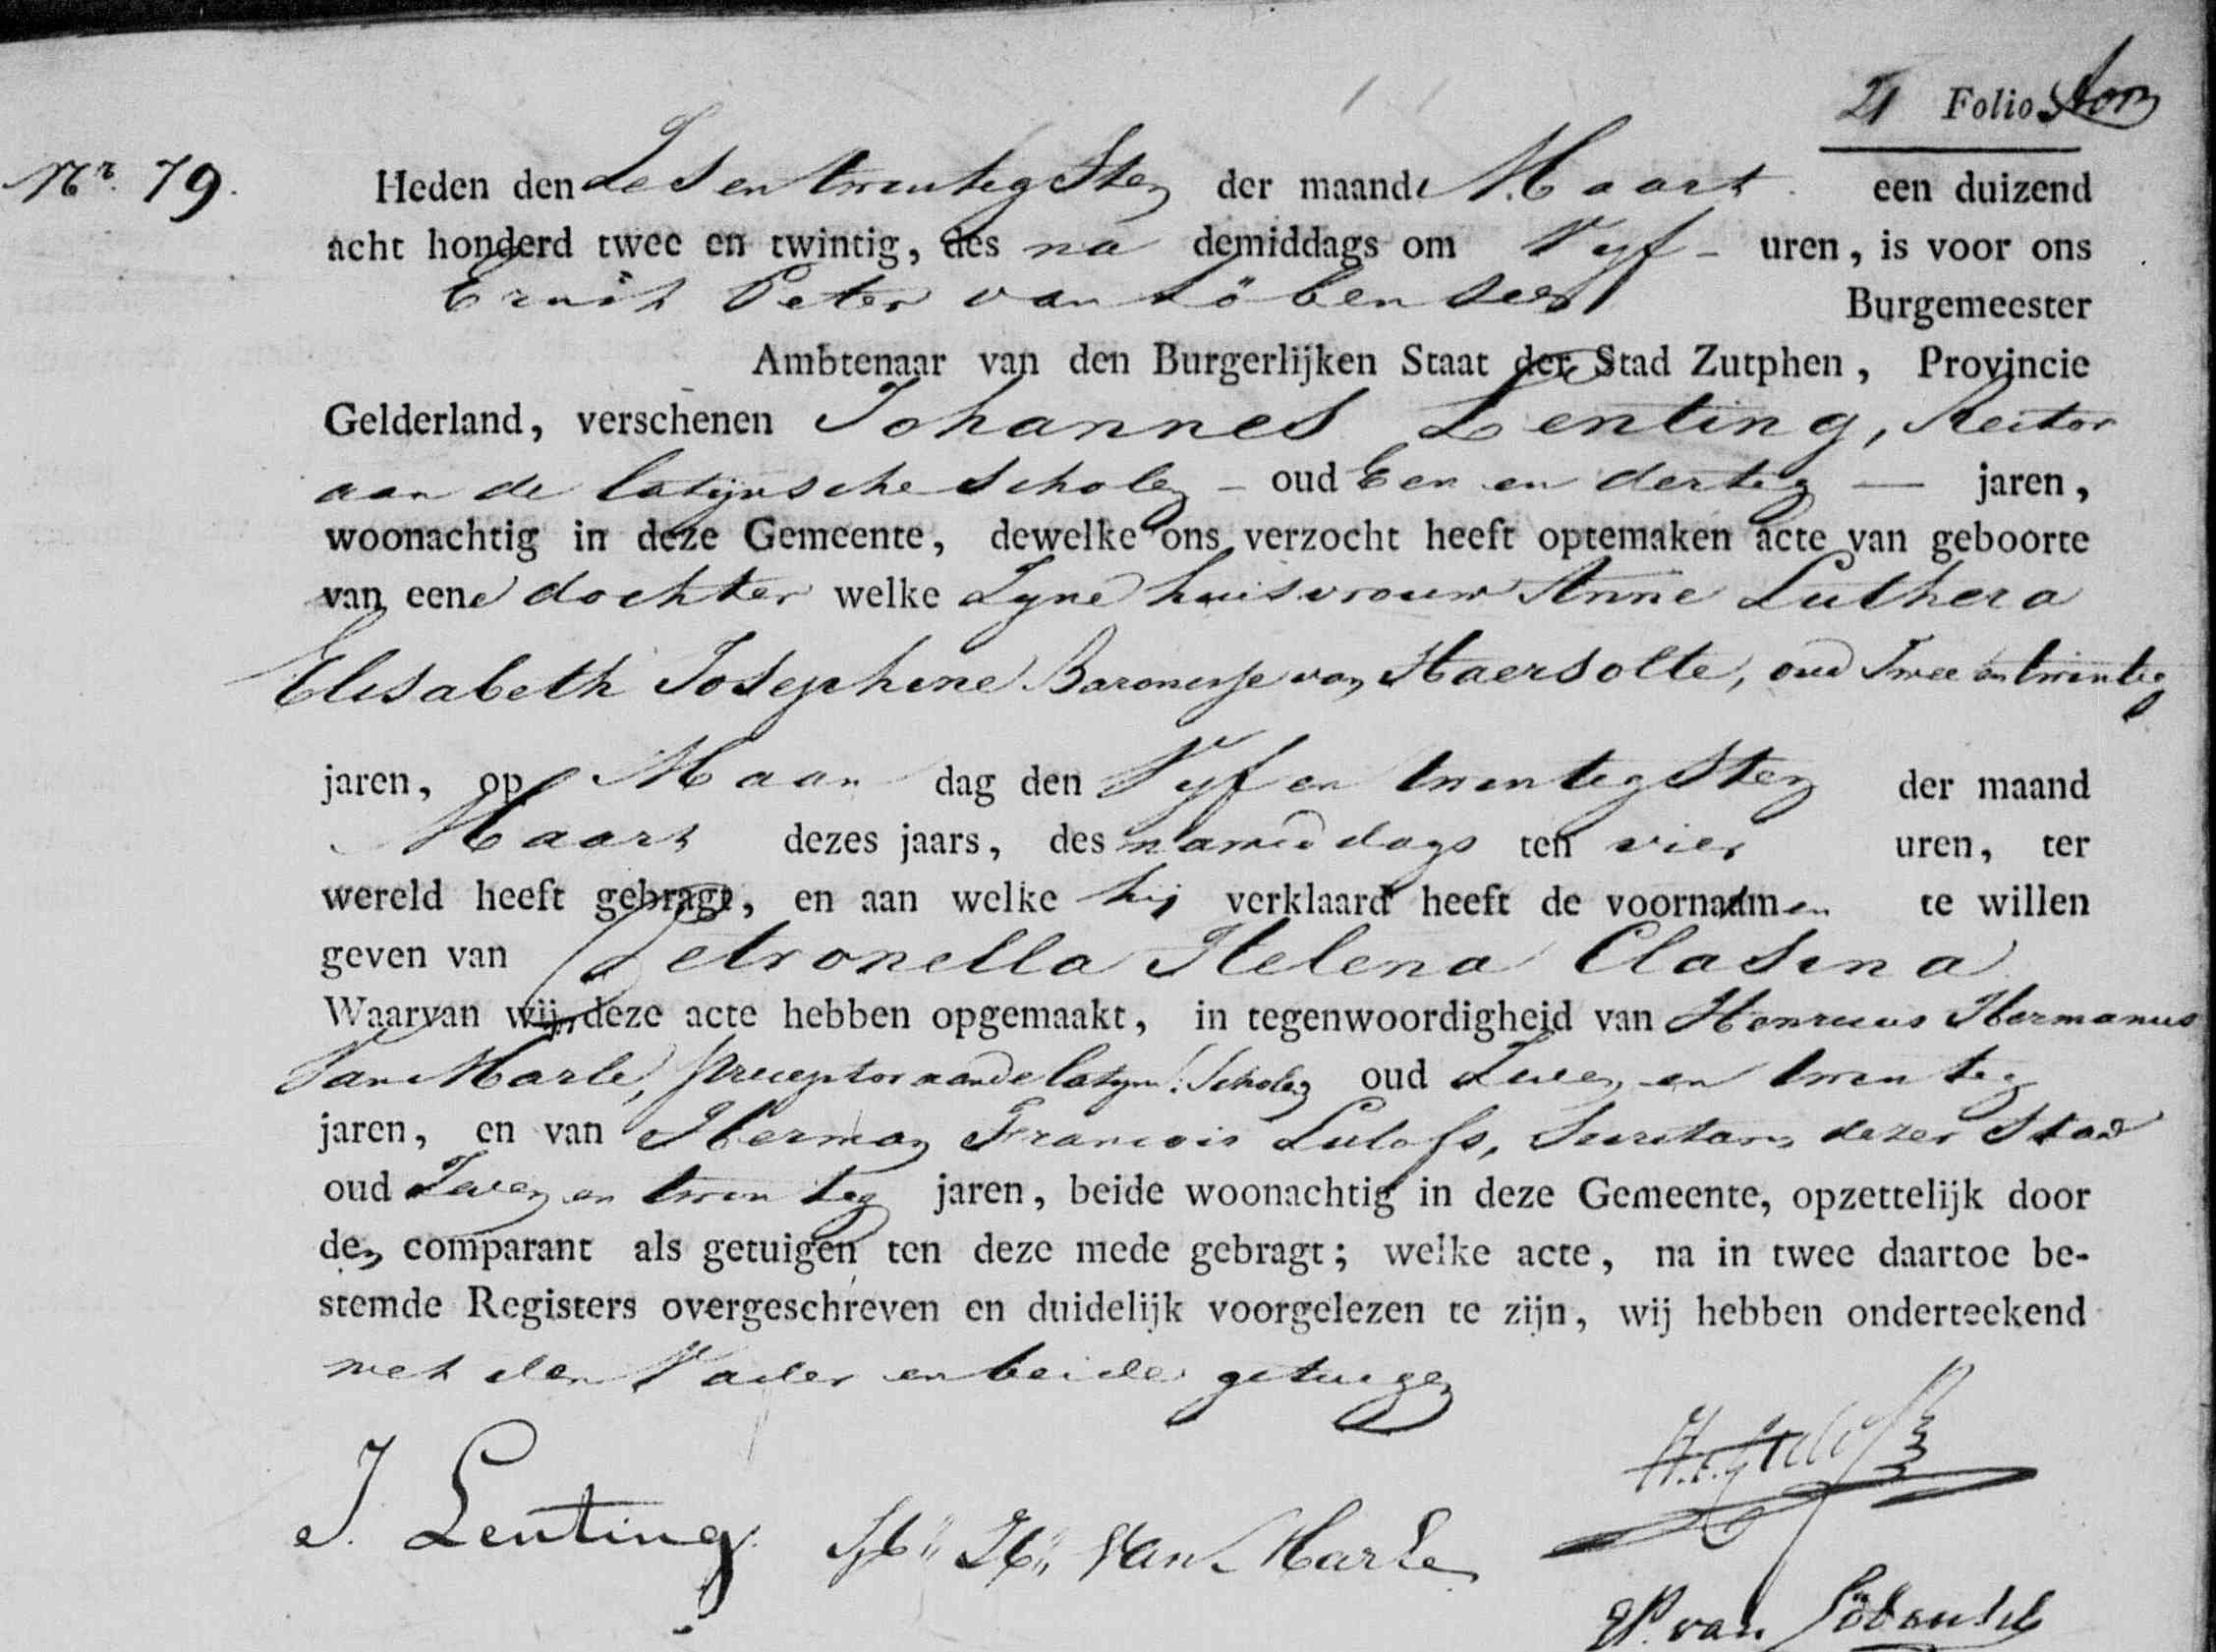 21 Folio
Nr. 79. Heden den Zes en twintigsten der maand Maart een duizend
acht honderd twee en twintig, des na demiddags om Vyf uren, is voor ons
Ernst Peter van Löben Sels Burgemeester
Ambtenaar van den Burgerlijken Staat der Stad Zutphen, Provincie
Gelderland, verschenen Johannes Lenting, Rector
aan de latijnsche Scholen – oud Een en dertig — jaren,
woonachtig in deze Gemeente, dewelke ons verzocht heeft optemaken acte van geboorte
van eene dochter welke Zyne huisvrouw Anne Luthera
Elisabeth Josephine Baronesse van Haersolte, oud Twee en twintig
jaren, op Maan dag den Vyf en twintigsten der maand
Maart dezes jaars, des namiddags ten vier uren, ter
wereld heeft gebragt, en aan welke hij verklaard heeft de voornaamen te willen
geven van Petronella Helena Clasina
Waarvan wij deze acte hebben opgemaakt, in tegenwoordigheid van Henricus Hermanus
Van Marle, preceptor aan de latyn: Scholen oud Zeven en twintig
jaren, en van Herman Francois Lulofs, Secretaris dezer Stad
oud Zeven en twintig jaren, beide woonachtig in deze Gemeente, opzettelijk door
den comparant als getuigen ten deze mede gebragt; welke acte, na in twee daartoe be-
stemde Registers overgeschreven en duidelijk voorgelezen te zijn, wij hebben onderteekend
met den Vader en beide getuigen
H.F. Lulofs
J. Lenting. H: H: Van Marle
EP. van Löben Sels